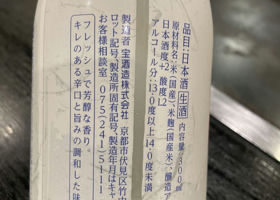 品目:日本酒 生酒 内容量:300ml
原材料名:米(国産)、米麹(国産米)、醸造
日本酒度:+2 酸度1.2
アルコール分:13.0度以上14.0度未満
製造者 宝酒造株式会社 京都市伏見区竹中
ロット記号、製造所固有記号、製造年月はキャ
お客様相談室 075(241)5111
フレッシュで芳醇な香り。
キレのある辛口と旨みの調和した味